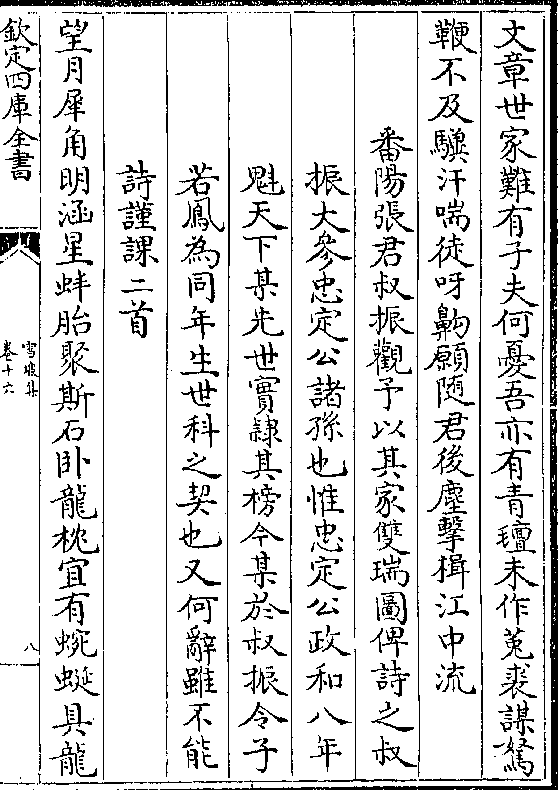 文章世家難有子夫何憂吾亦有青氊未作菟裘謀駑
鞭不及驥汗喘徒呀齁願随君後塵擊楫江中流
番陽張君叔振觀予以其家雙瑞圖俾詩之叔
振大參忠定公諸孫也惟忠定公政和八年
魁天下某先世實隷其榜今某於叔振令子
若鳳為同年生世科之契也又何辭雖不能
詩謹課二首
望月犀角明涵星蚌胎聚斯石卧龍枕宜有蜿蜒具龍
欽定四庫全書
雪坡集
卷十六
八